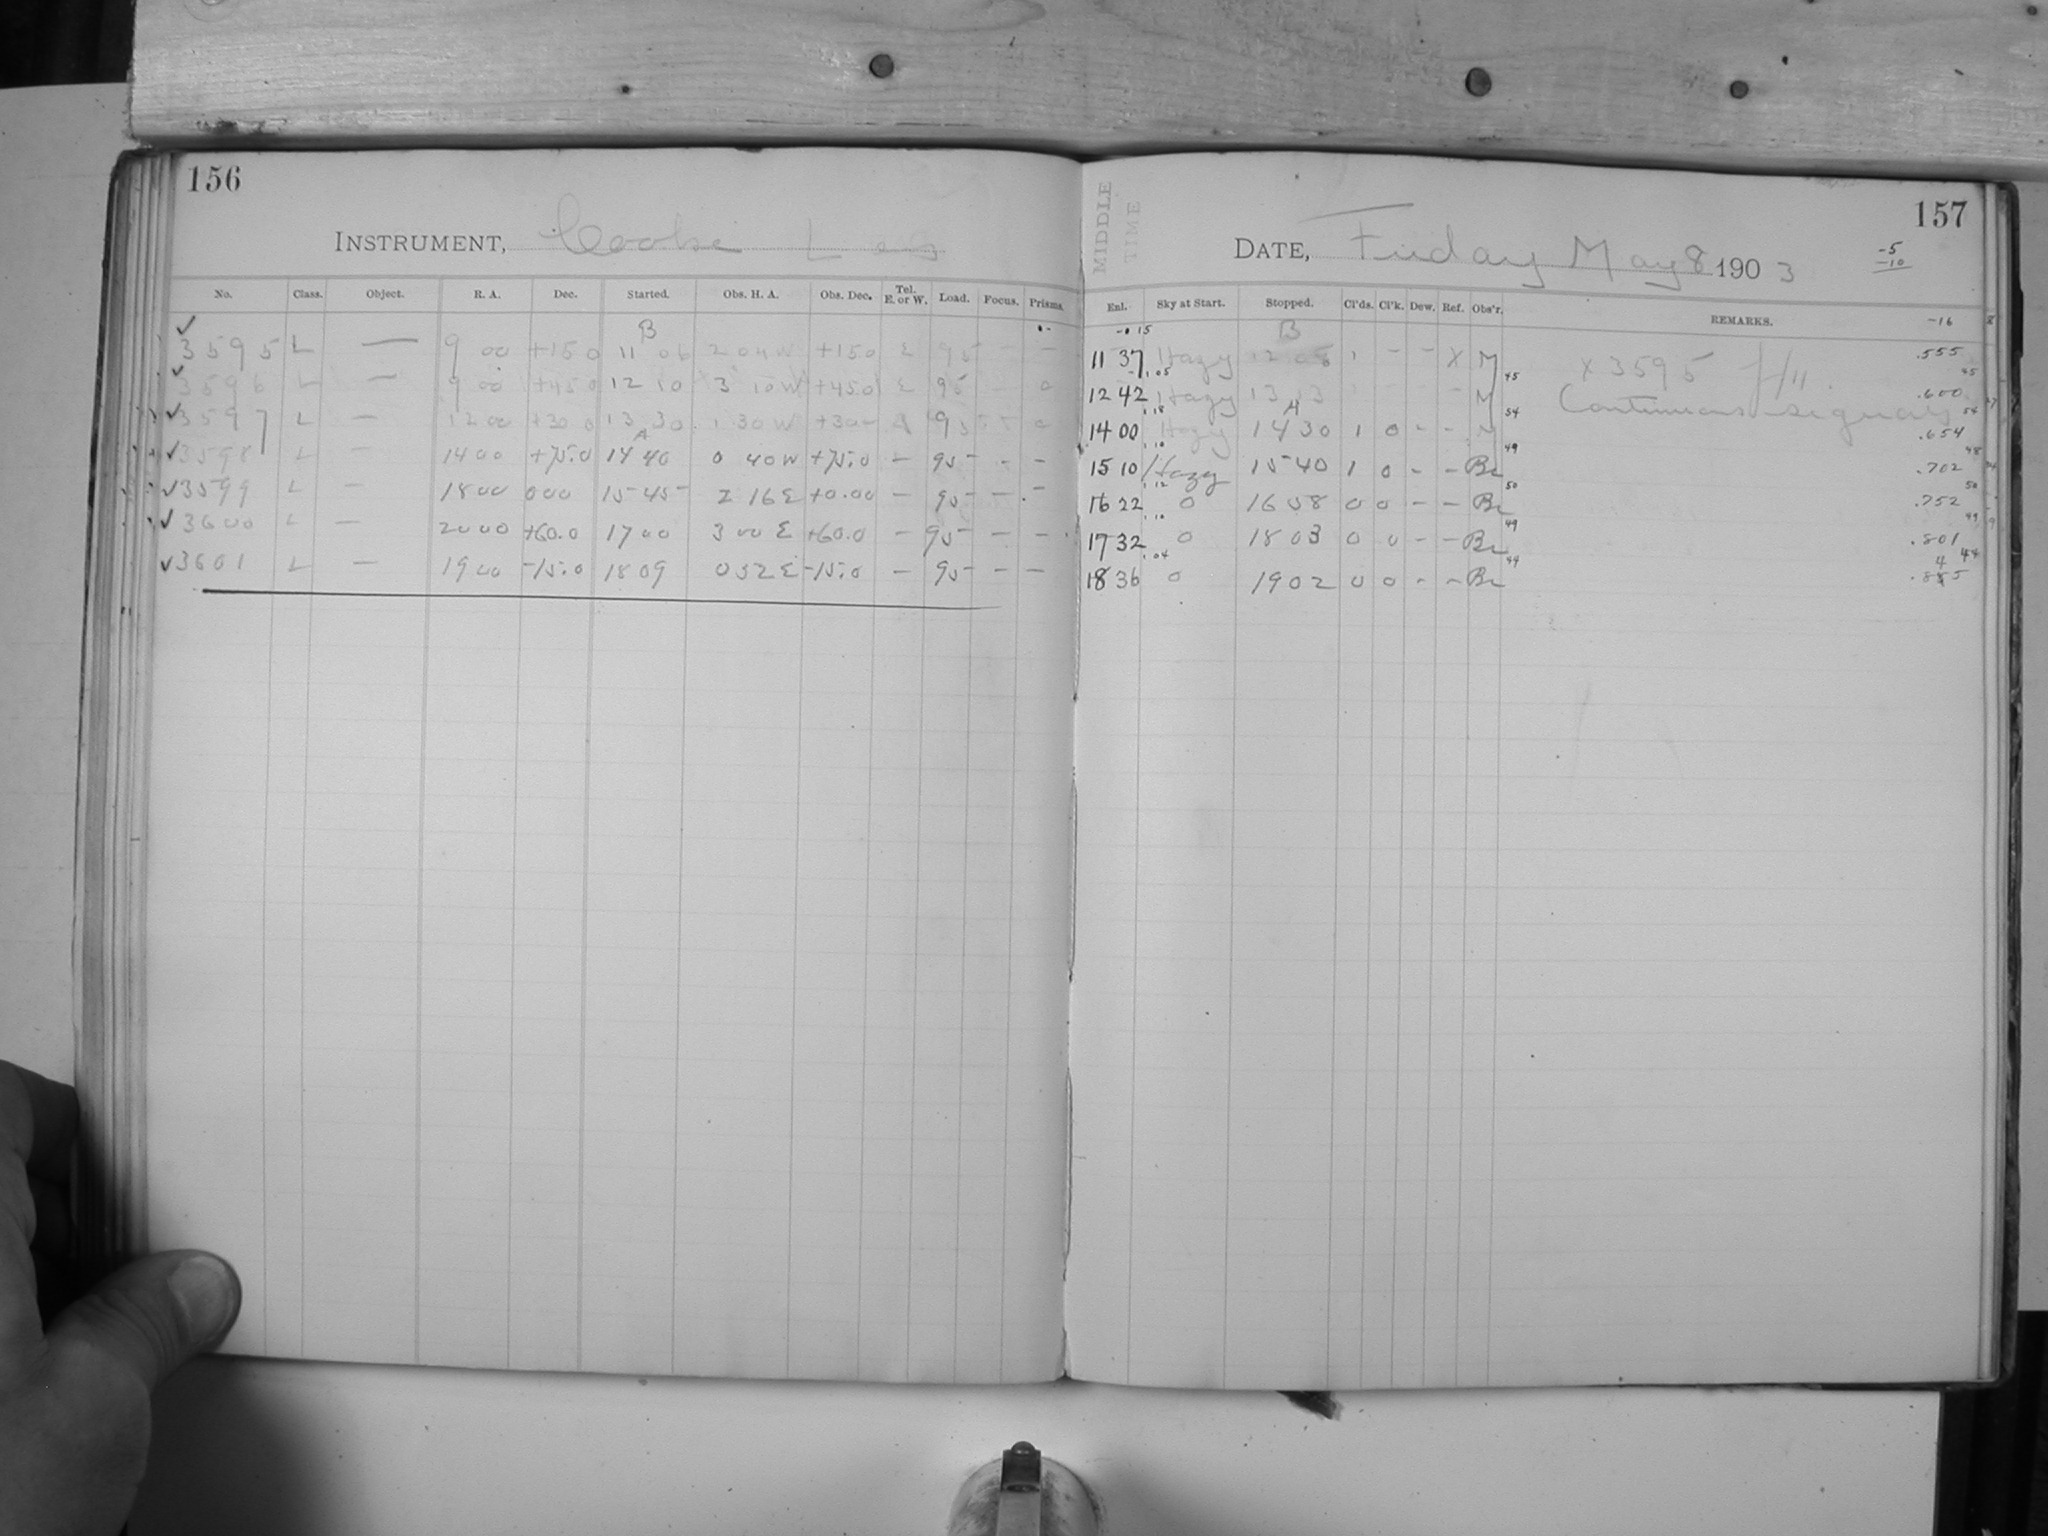 156
INSTRUMENT, Cooke Lens
No. Class. Object. R. A. Dec. Started. Obs. H. A. Obs. Dec. Tel. E. or W. Load. Focus. Prisms.
B
✓ 3595 L — 9 00 +15 0 11 06 2 04 W +15 0 E 95 – –
✓ 3596 L — 9 00 +45 0 12 10 3 10 W +45.0 E 95 – 0
✓ 3597 L — 12 00 +30 0 13 30 1 30 W +30 – 95 0
A
✓ 3598 L — 14 00 +75.0 14 40 0 40 W +75.0 — 95 – –
✓ 3599 L — 18 00 0 00 15 45 2 16 E +0.00 — 95 – –
✓ 3600 L — 20 00 +60.0 17 00 3 00 E +60.0 — 95 – –
✓ 3601 L — 19 00 -15.0 18 09 0 52 E -15.0 — 95 – –
157
MIDDLE TIME
DATE, Friday May 8 1903
-5
-10
Enl. Sky at Start. Stopped. Cl'ds. Cl'k. Dew. Ref. Obs'r. REMARKS. -16
B
11 37 Hazy 12 08 1 – – X M x 3595 .555
1.05 45 45
12 42 Hazy 13 13 – M Continuous .600
1.18 A 54 54
14 00 Hazy 14 30 1 0 – – M .654
1.10 49 48
15 10 Hazy 15 40 1 0 – – Br .702
1.12 50 50
16 22 0 16 58 0 0 – – Br .752
1.10 49 49
17 32 0 18 03 0 0 – – Br .801
1.04 44 44
18 36 0 19 02 0 0 – – Br